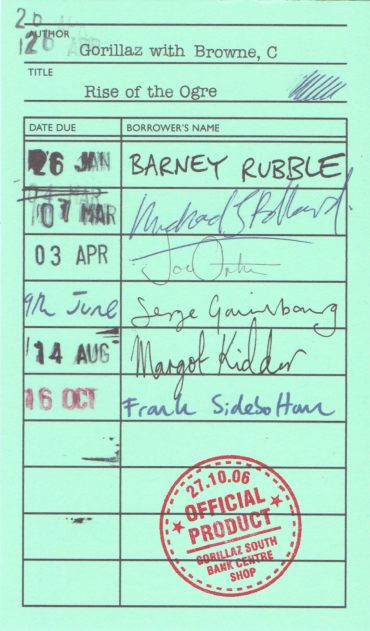 20
AUTHOR
126 APR
Gorillaz with Browne, C
TITLE
Rise of the Ogre
DATE DUE BORROWER'S NAME
26 JAN BARNEY RUBBLE
04 MAR
07 MAR Michael J Pollard.
03 APR Joe Orton
9th June Serge Gainsbourg
14 AUG Margot Kidder
16 OCT Frank Sidebottom
27.10.06
OFFICIAL
PRODUCT
GORILLAZ SOUTH
BANK CENTRE
SHOP